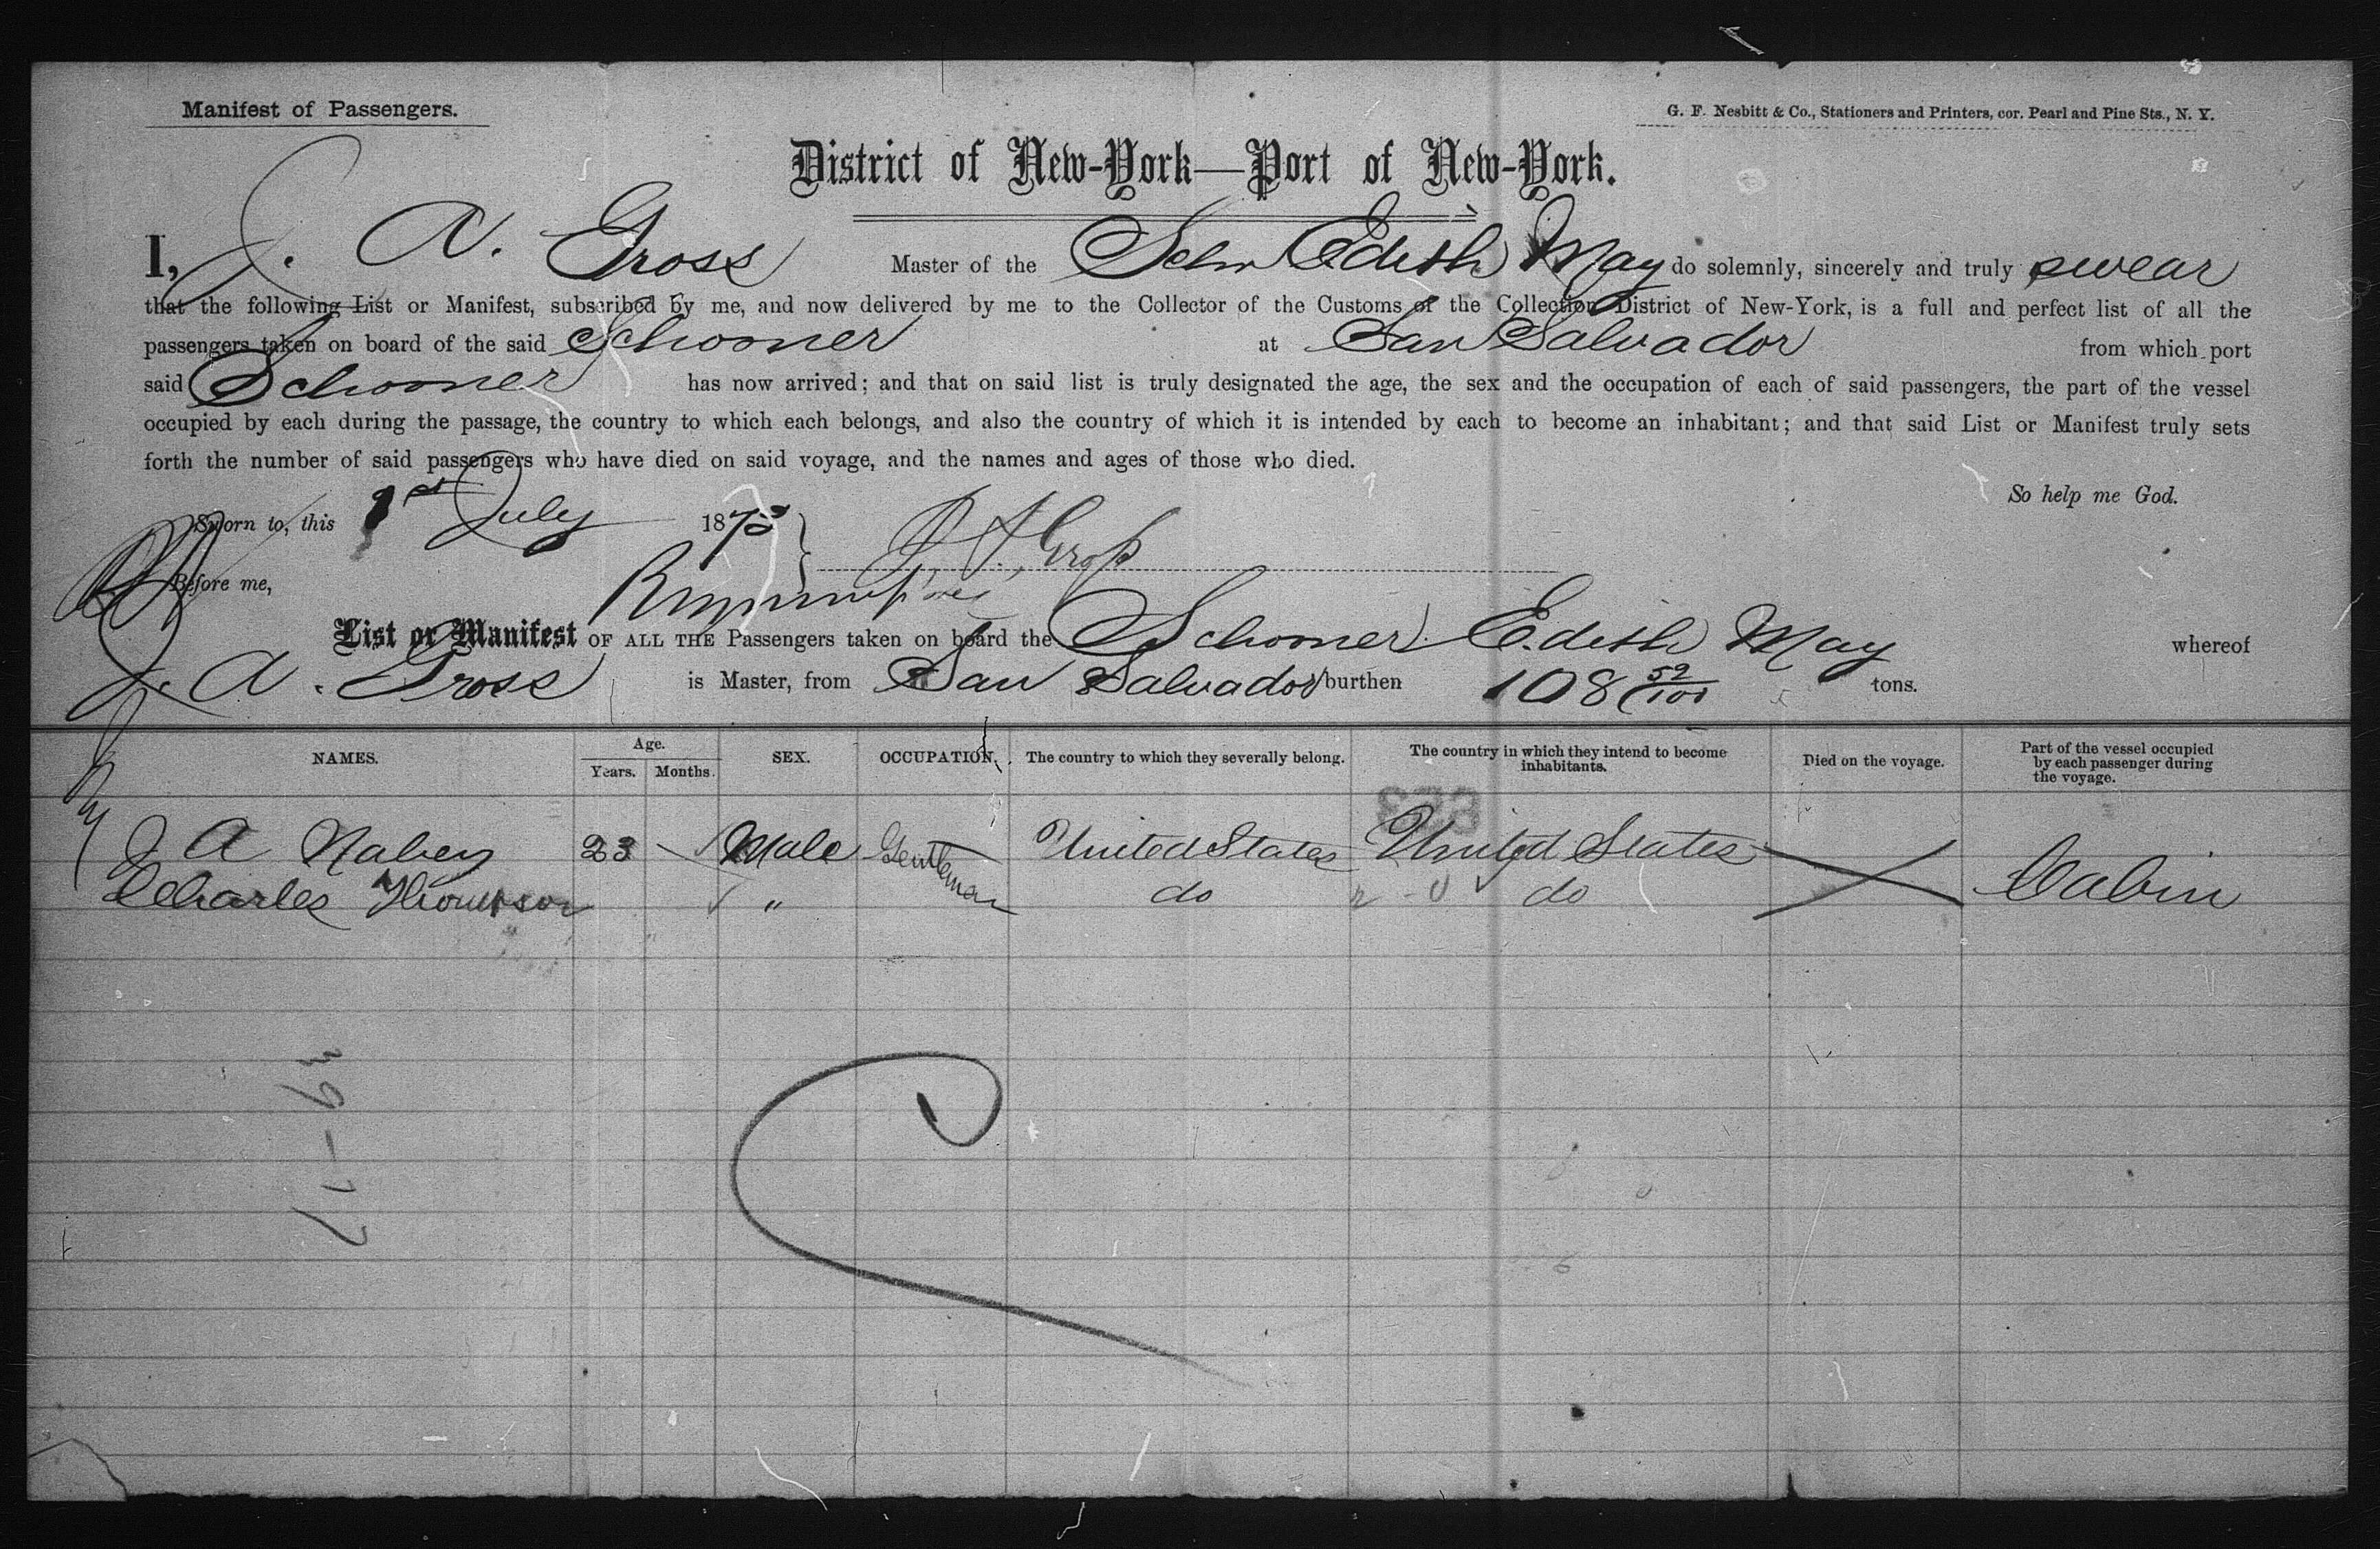 Manifest of Passengers.
G. F. Nesbitt & Co., Stationers and Printers, cor. Pearl and Pine Sts., N. Y.
District of New-York—Port of New-York.
I, J. A. Gross Master of the Schr Edith May do solemnly, sincerely and truly swear
that the following List or Manifest, subscribed by me, and now delivered by me to the Collector of the Customs of the Collection District of New-York, is a full and perfect list of all the
passengers taken on board of the said Schooner at San Salvador from which port
said Schooner has now arrived; and that on said list is truly designated the age, the sex and the occupation of each of said passengers, the part of the vessel
occupied by each during the passage, the country to which each belongs, and also the country of which it is intended by each to become an inhabitant; and that said List or Manifest truly sets
forth the number of said passengers who have died on said voyage, and the names and ages of those who died.
So help me God.
Sworn to, this 1st July 1875
J. A. Gross
Before me,
List or Manifest OF ALL THE Passengers taken on board the Schooner Edith May whereof
J. A. Gross is Master, from San Salvador burthen 108 52/100 tons.
NAMES. Age. Years. Months. SEX. OCCUPATION. The country to which they severally belong. The country in which they intend to become inhabitants. Died on the voyage. Part of the vessel occupied by each passenger during the voyage.
J A Nabey 23 Male Gentleman United States United States Cabin
Charles Thompson " do do